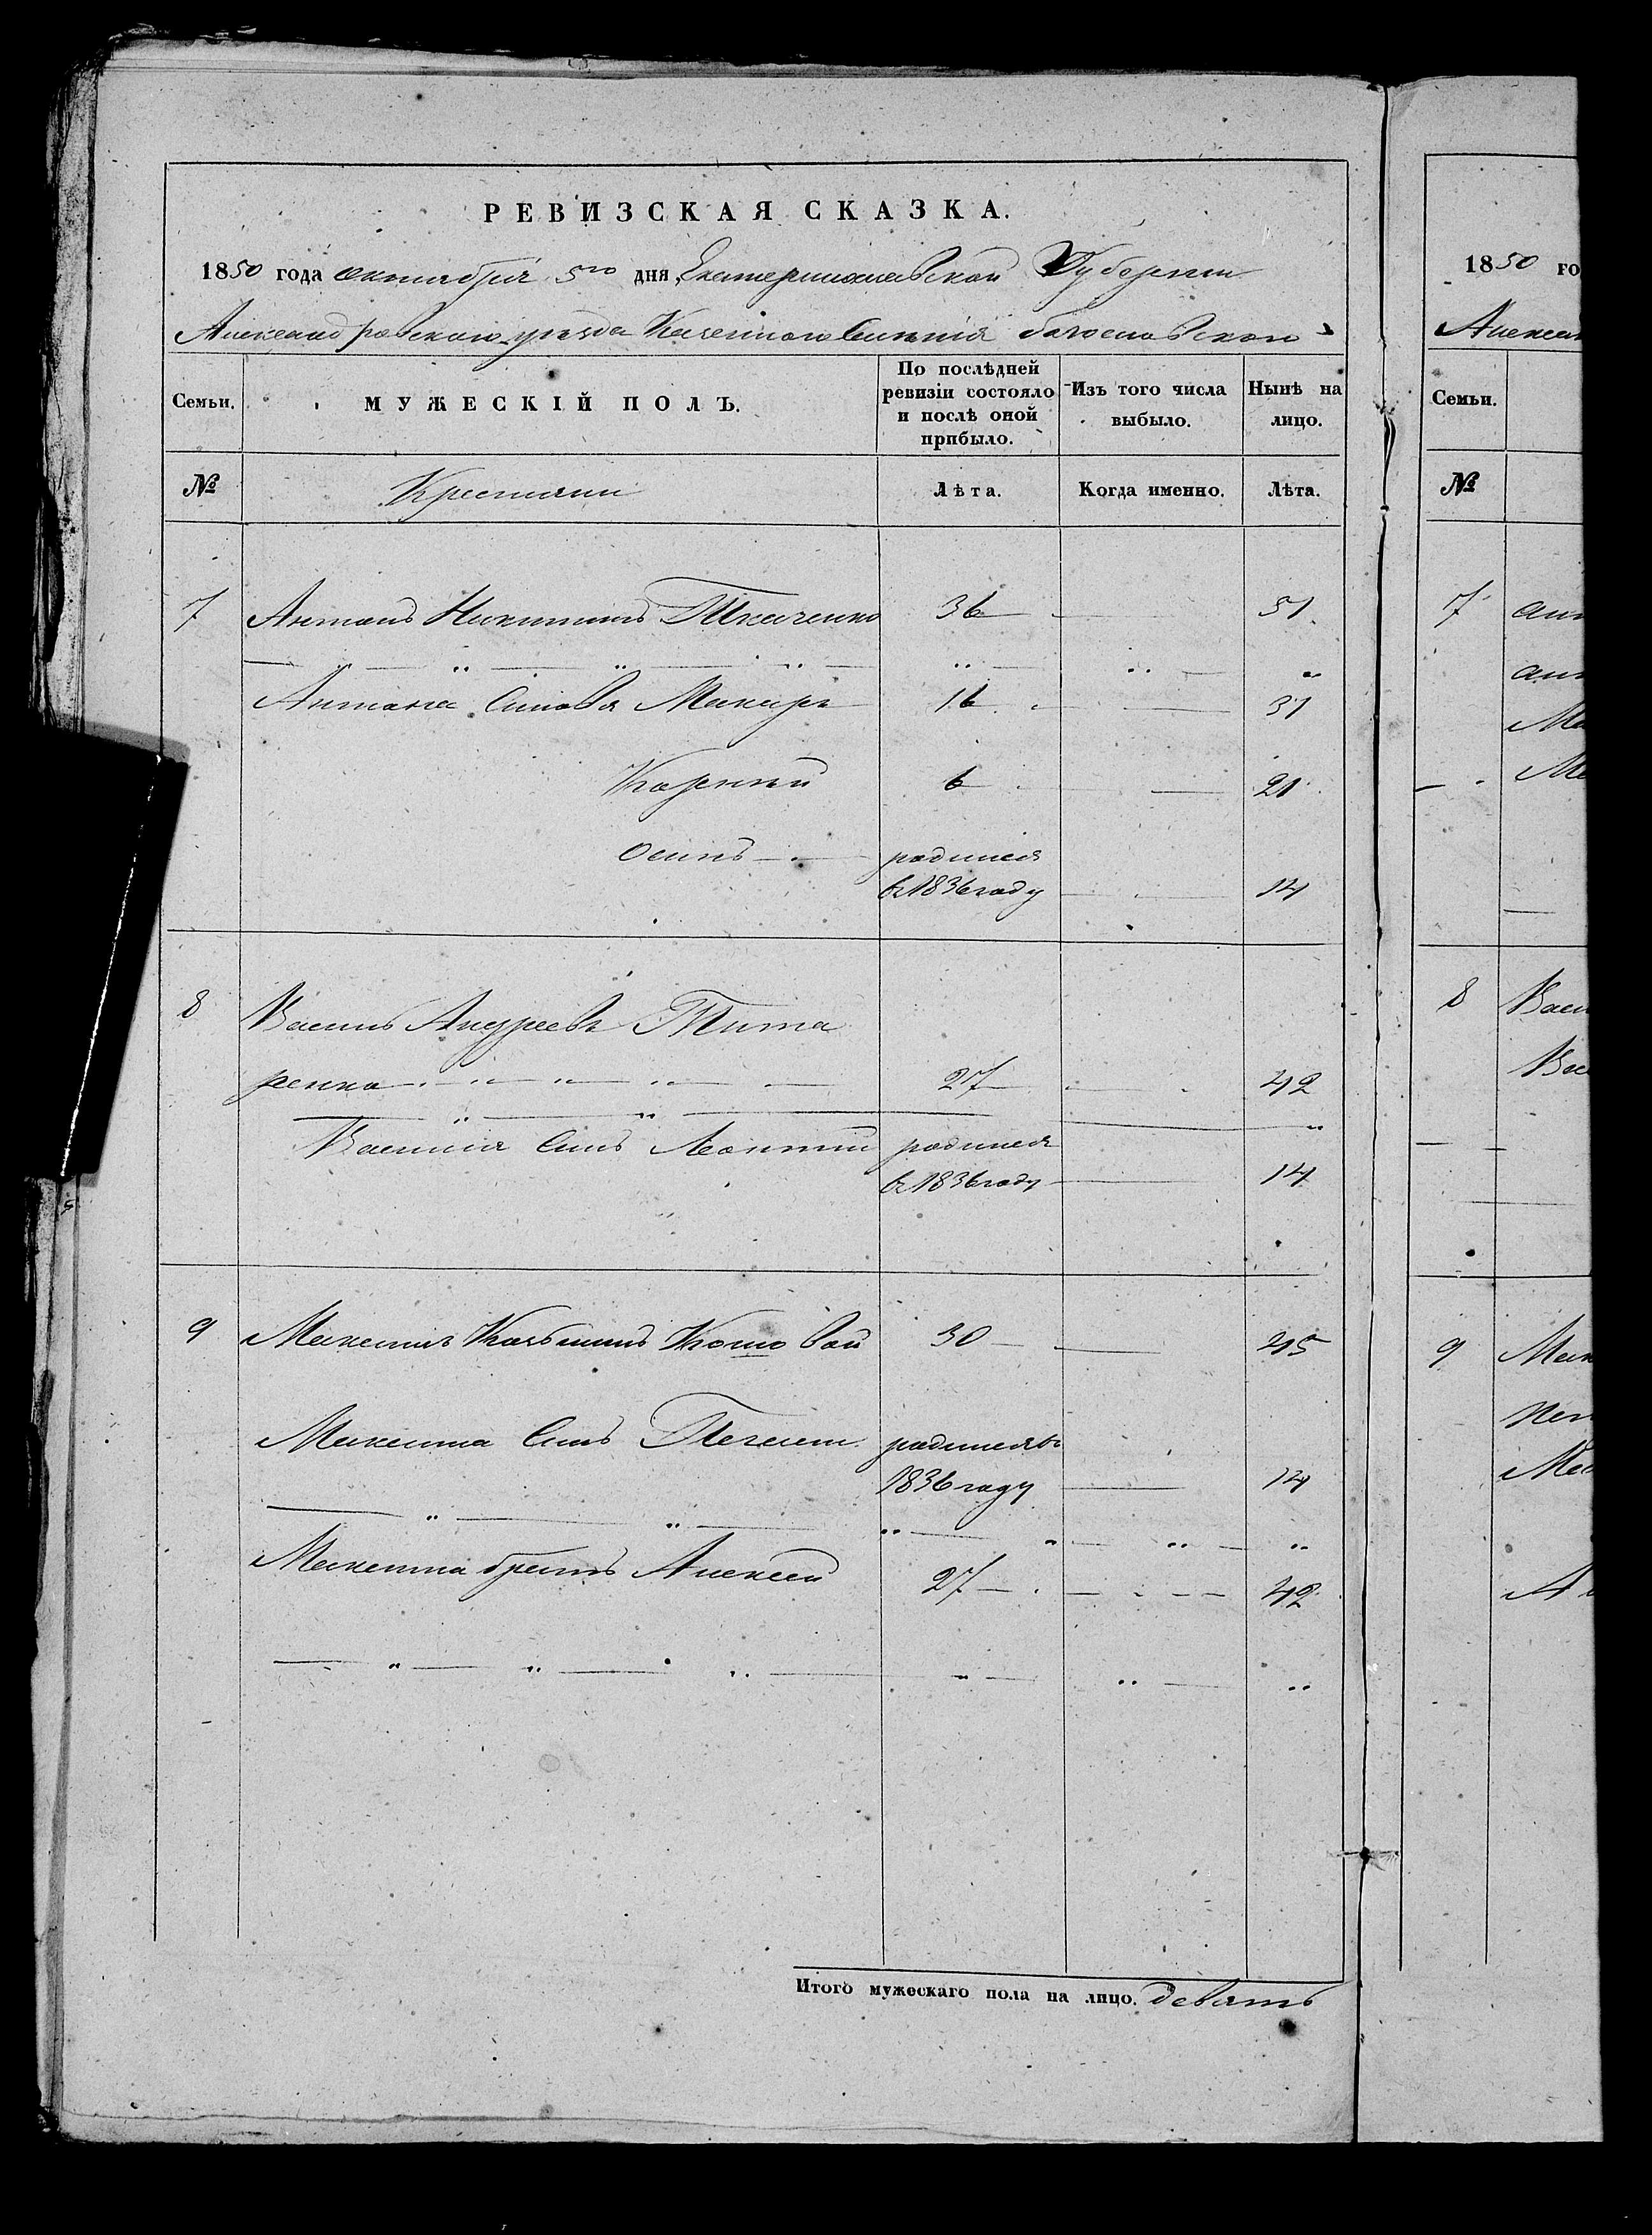 РЕВИЗСКАЯ СКАЗКА.
1850 года октября 5го дня Екатеринославской Губернии
Александровскаго уезда Казенного Селения богословскаго
Семьи.
МУЖЕСКІЙ ПОЛЪ.
По послѣдней ревизіи состояло и послѣ оной прибыло.
Изъ того числа выбыло.
Нынѣ на лицо.
№ Крестьяни Лѣта. Когда именно. Лѣта.
7 Антонъ Никитинъ Ткаченко 36 51
Антона Сыновя Макаръ 16 31
Корний 6 21
Осипъ родился
в 1836 году 14
8 Василь Андреевъ Тита
ренко 27 42
Василия Сынъ Леонтий родился
в 1836 году 14
9 Максимъ Козьминъ Кошовой 30 45
Максима Сынъ родился в
1836 году 14
Максима братъ Алексей 27 42
Итого мужескаго пола на лицо. девять
1850 го
Алексан
Семьи.
№
7 ант
ант
Ма
Ма
8 Васи
Вас
9 Мак
Пел
Ма
А